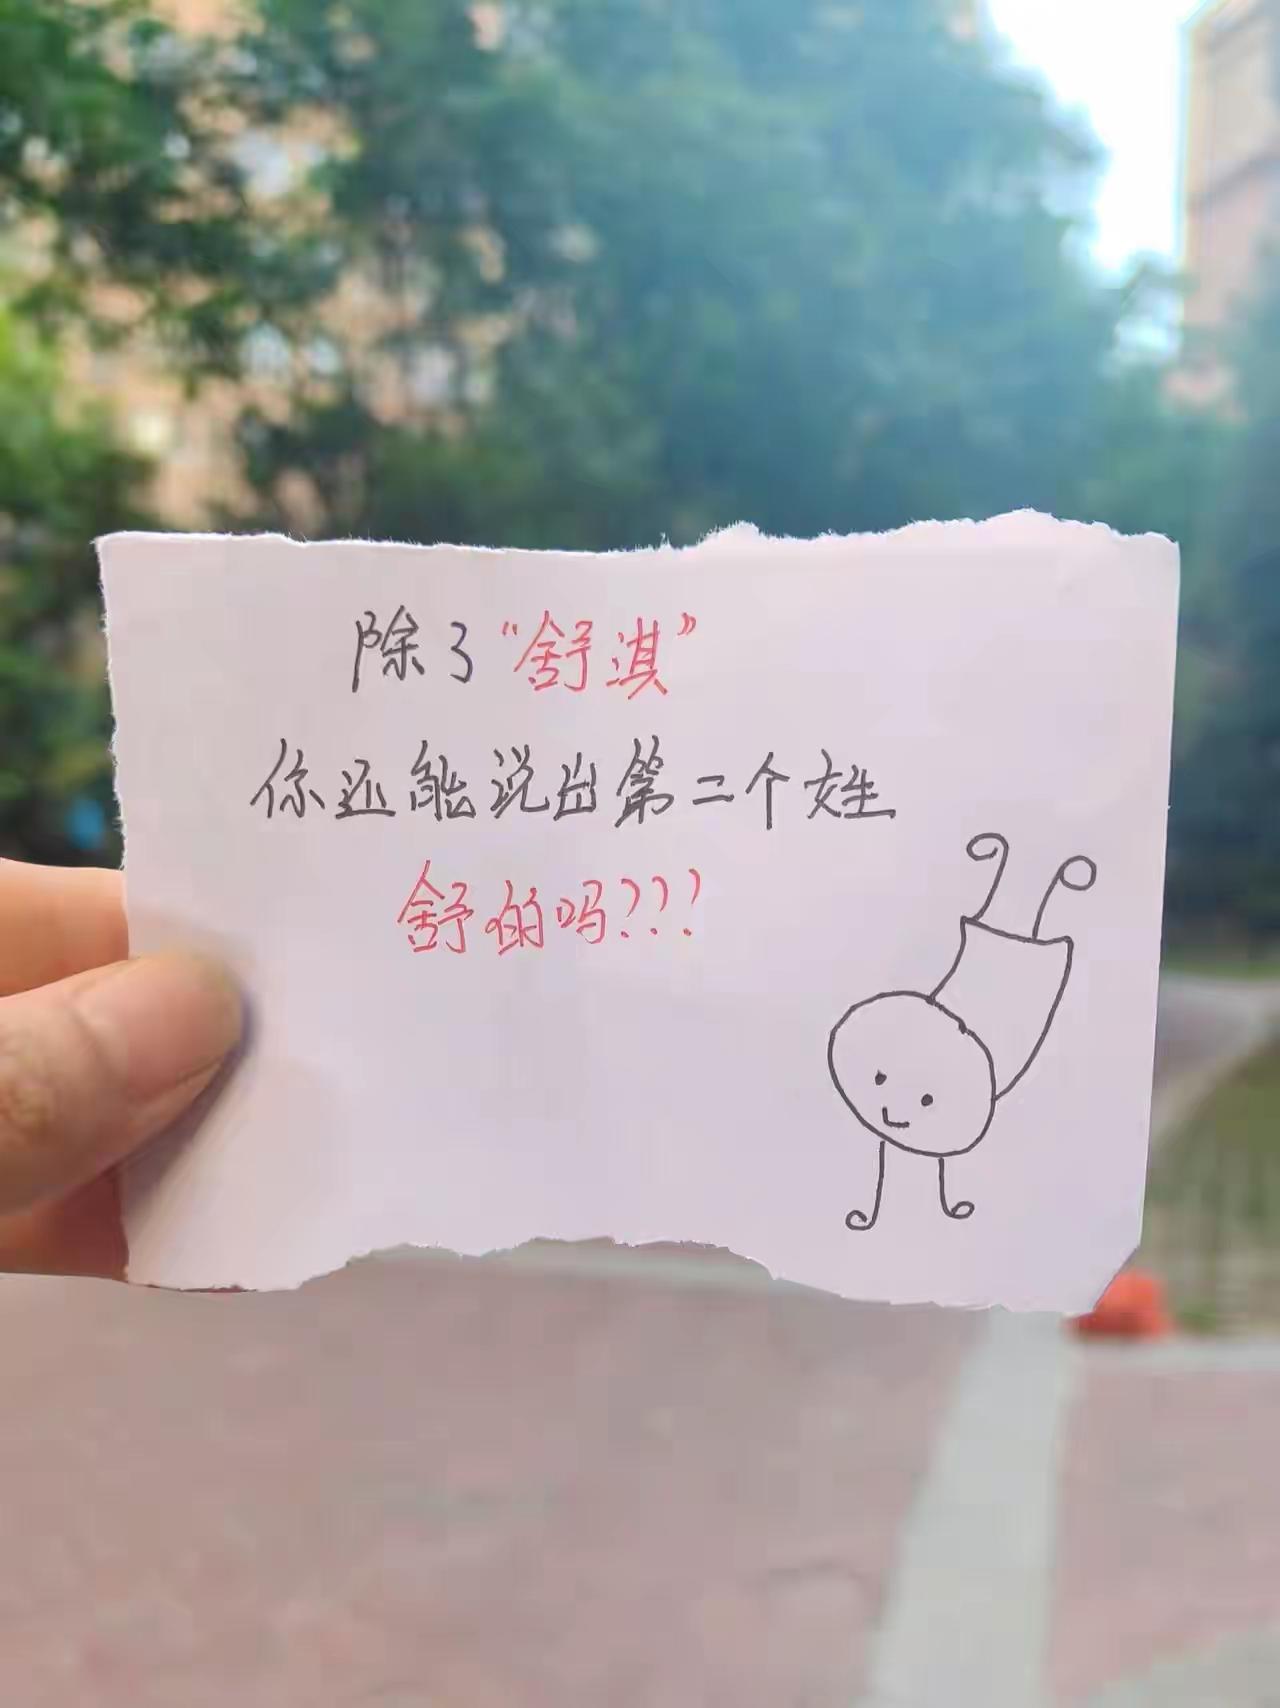 除了“舒淇”
你还能说出第二个姓
舒的吗???